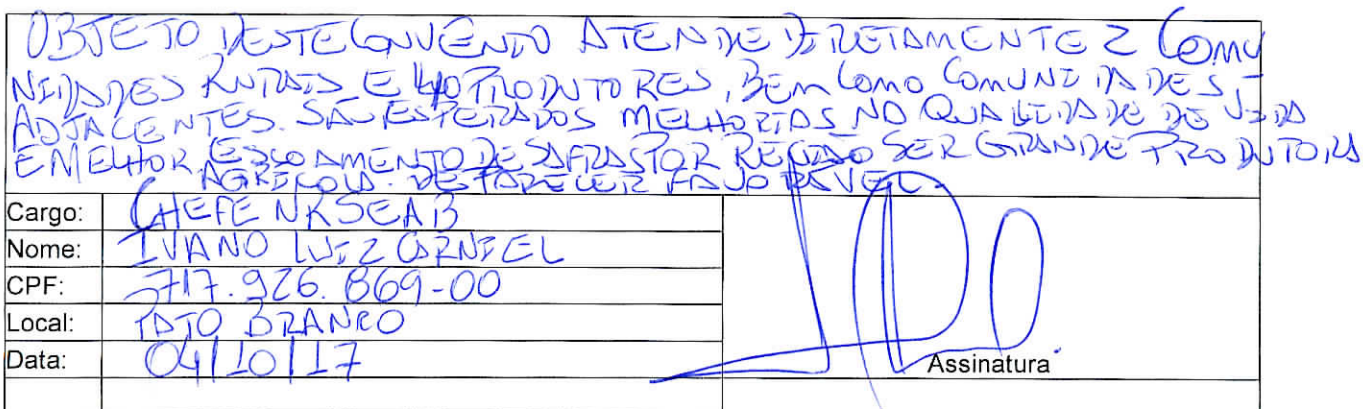 OBJETO DESTE CONVÊNIO ATENDE DIRETAMENTE 2 COMU
NIDADES RURAIS E 40 PRODUTORES, BEM COMO COMUNIDADES
ADJACENTES. SÃO ESPERADOS MELHORIAS NA QUALIDADE DE VIDA
E MELHOR ESCOAMENTO DE SAFRAS POR REGIÃO SER GRANDE PRODUTORA
AGRÍCOLA. DESTA PARECER FAVORÁVEL.
Cargo: CHEFE NRSEAB
Nome: IVANO LUIZ CARNIEL
CPF: 717.926.869-00
Local: PATO BRANCO
Data: 04/10/17
Assinatura